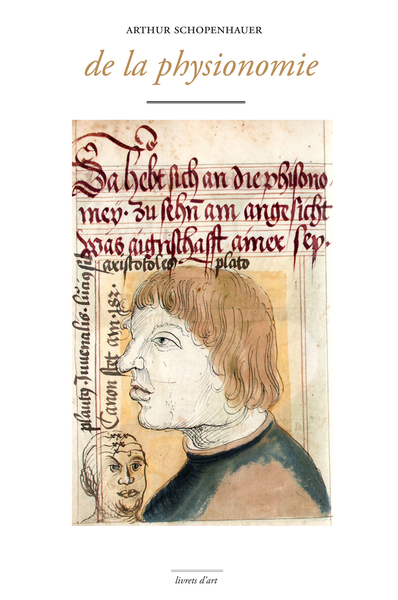 ARTHUR SCHOPENHAUER
de la physionomie
Da hebt sich an die phisono
mey. Zu sehn am angesicht
was aign̄schafft ainer sey.
aristotoles plato
plautꝰ Juuenalis
Canon
livrets d'art